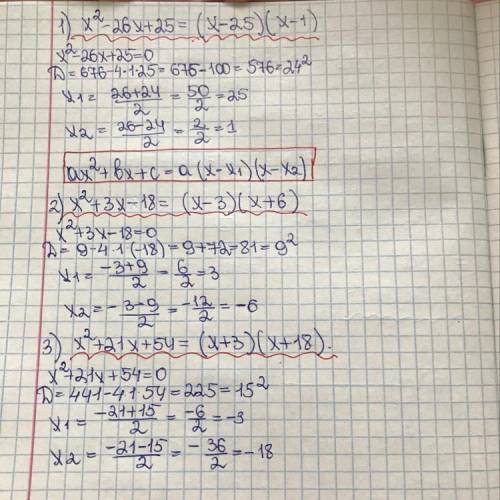 1) x²-26x+25= (x-25)(x-1)
x²-26x+25=0
D=676-4·1·25=676-100=576=24²
x1= (26+24)/2 = 50/2 = 25
x2= (26-24)/2 = 2/2 = 1
ax²+bx+c= a(x-x1)(x-x2)
2) x²+3x-18= (x-3)(x+6)
x²+3x-18=0
D= 9-4·1·(-18)=9+72=81=9²
x1= (-3+9)/2 = 6/2 = 3
x2= (-3-9)/2 = -12/2 = -6
3) x²+21x+54= (x+3)(x+18).
x²+21x+54=0
D=441-4·1·54=225=15²
x1= (-21+15)/2 = -6/2 = -3
x2= (-21-15)/2 = -36/2 = -18